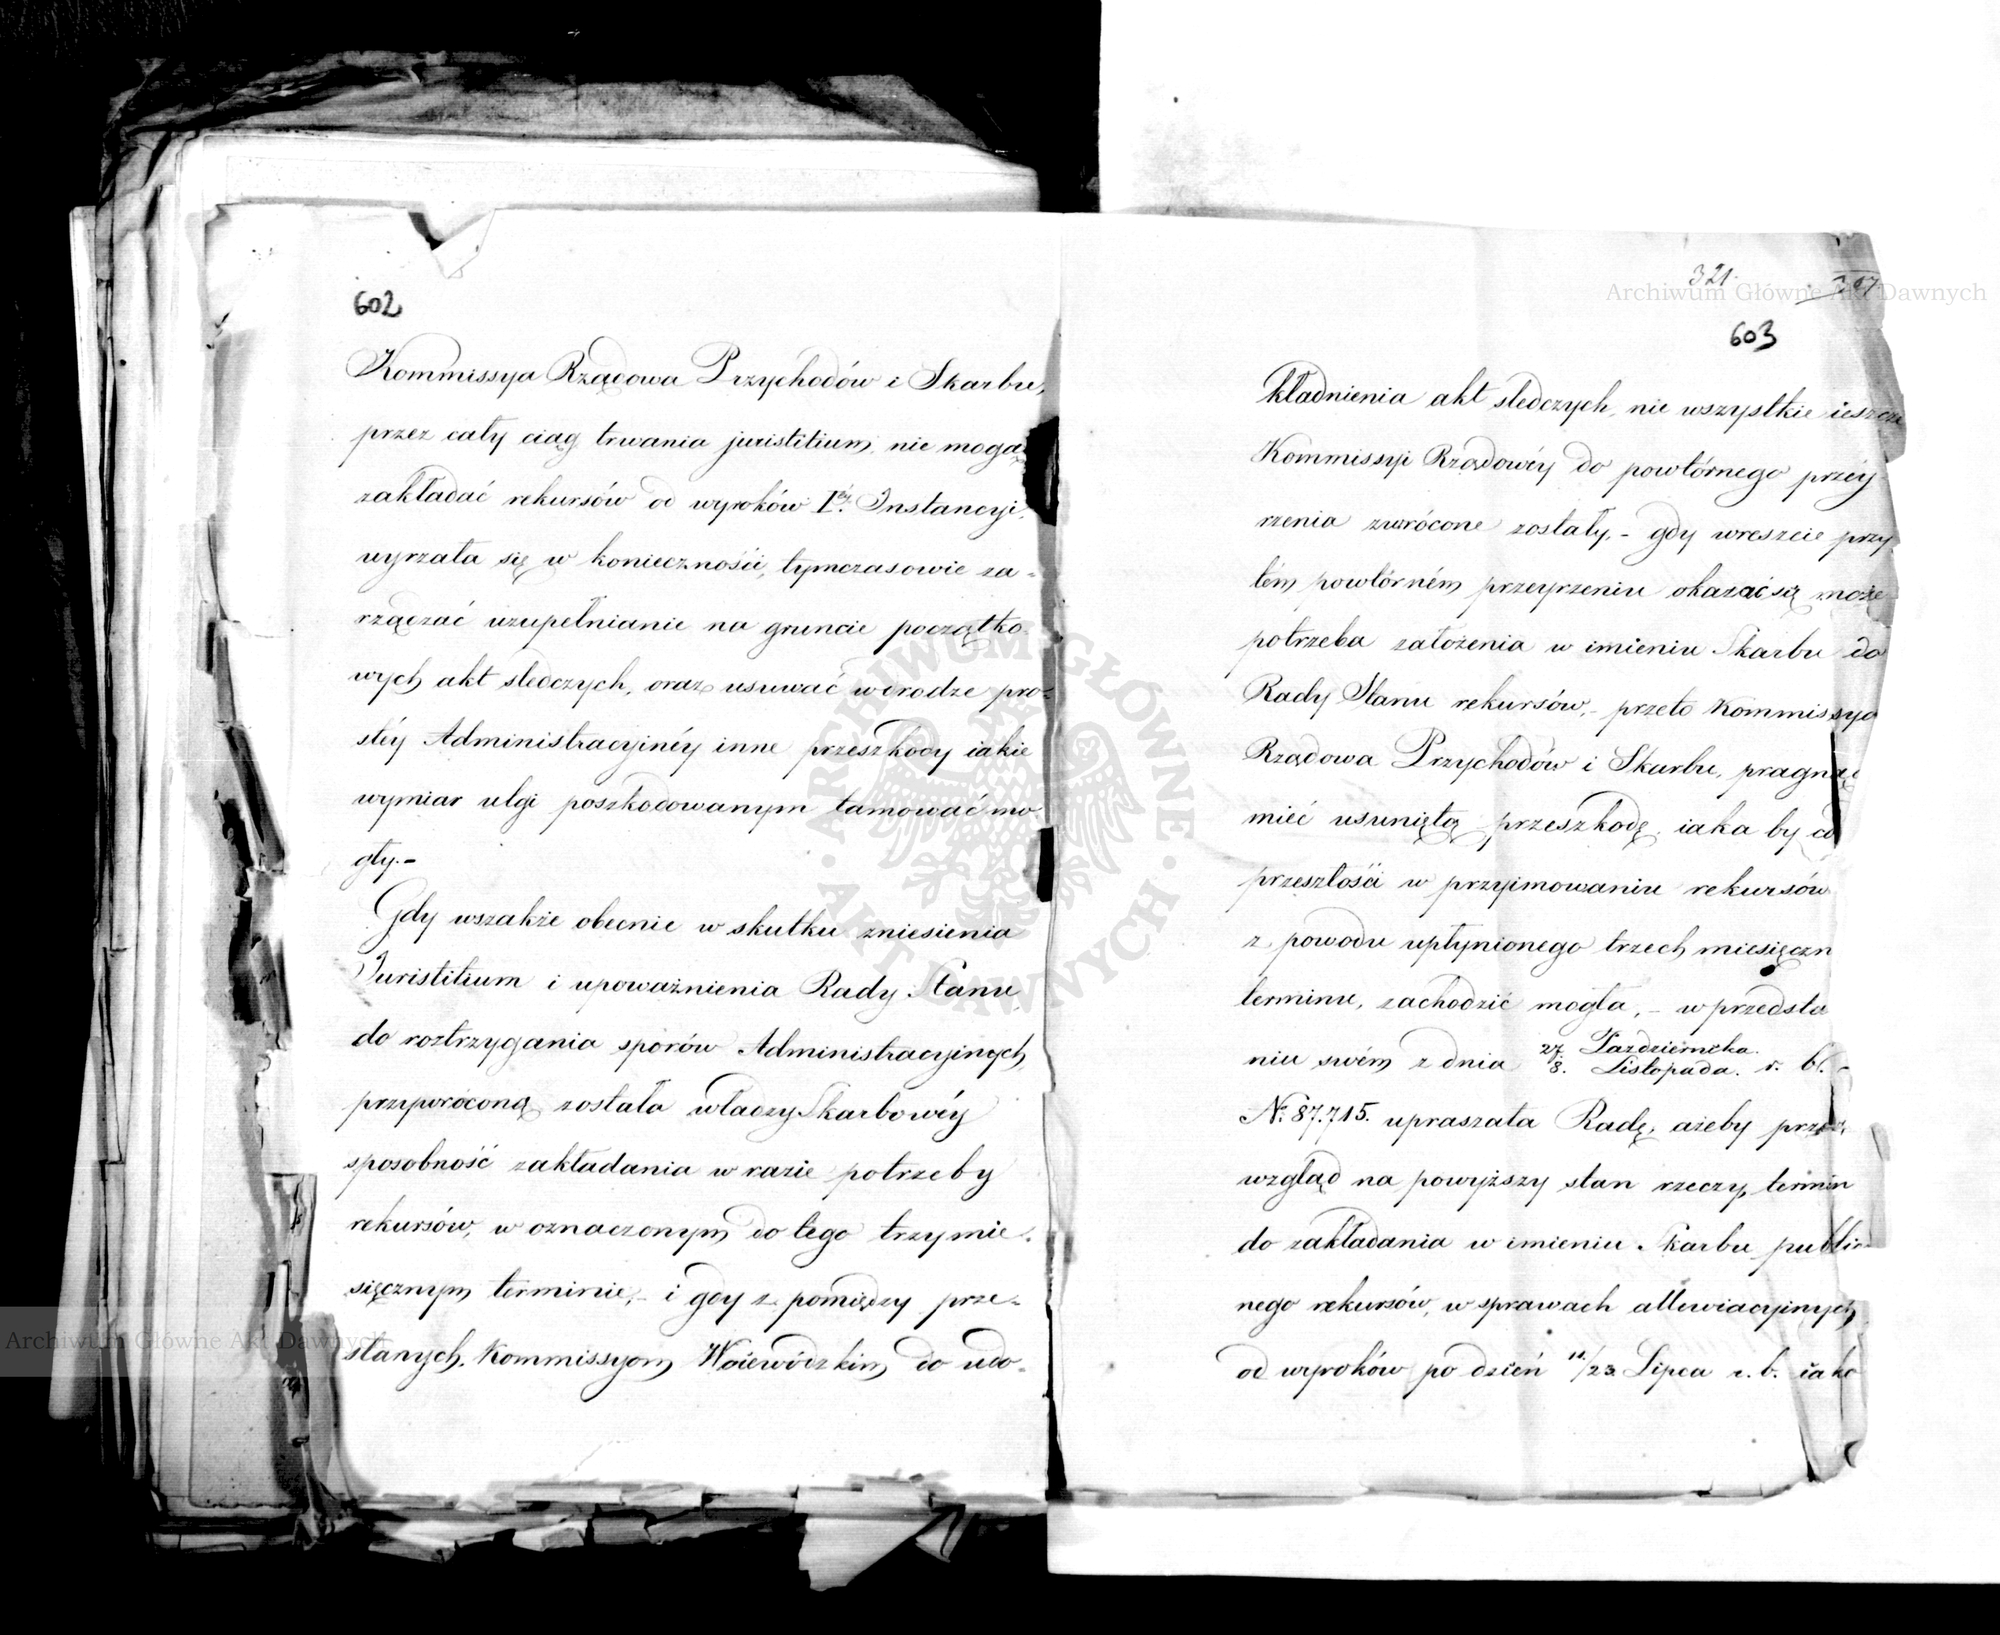 602
Kommissya Rządowa Przychodów i Skarbu,
przez cały ciąg trwania juristitium, nie mogąc
zakładać rekursów od wyroków Iéy. Instancyi,
uyrzała się w konieczności, tymczasowie za-
rządzać uzupełnianie na gruncie początko-
wych akt śledczych, oraz usuwać w drodze pro-
stéy Administracyinéy inne przeszkody iakie
wymiar ulgi poszkodowanym tamować mo-
gły.-
Gdy wszakże obecnie w skutku zniesienia
Juristitium i upoważnienia Rady Stanu
do roztrzygania sporów Administracyinych,
przywróconą została władzy Skarbowéy
sposobność zakładania w razie potrzeby
rekursów, w oznaczonym do tego trzymie-
sięcznym terminie,- i gdy z pomiędzy prze-
słanych Kommissyom Woiewódzkim do udo-
321.
603
kładnienia akt śledczych, nie wszystkie ieszcze
Kommissyi Rządowéy do powtórnego przéy-
rzenia zwrócone zostały,- gdy wreszcie przy
tém powtórném przeyrzeniu okazać się może
potrzeba założenia w imieniu Skarbu do
Rady Stanu rekursów,- przeto Kommissya
Rządowa Przychodów i Skarbu, pragnąc
mieć usuniętą przeszkodę, iaka by co
przeszłości w przyimowaniu rekursów
z powodu upłynionego trzech miesięczn
terminu, zachodzić mogła,- w przedsta
niu swém z dnia 27. Października. / 8. Listopada. r. b. -
No. 87.715. upraszała Radę, ażeby przez
wzgląd na powyższy stan rzeczy, termin
do zakładania w imieniu Skarbu public
nego rekursów, w sprawach allewiacyinych
od wyroków po dzień 11/23 Lipca r. b. iako
Archiwum Główne Akt Dawnych
Archiwum Główne Akt Dawnych
ARCHIWUM GŁÓWNE AKT DAWNYCH